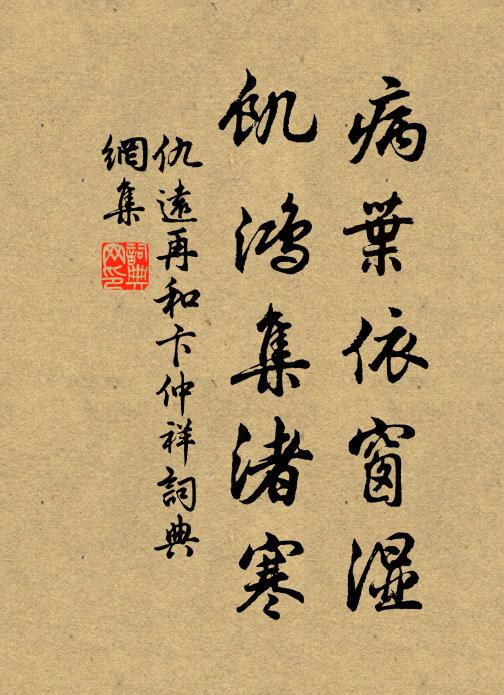 病葉依窗湿
飢鴻集渚寒
仇遠再和卞仲祥詞典
網集
詞典网印